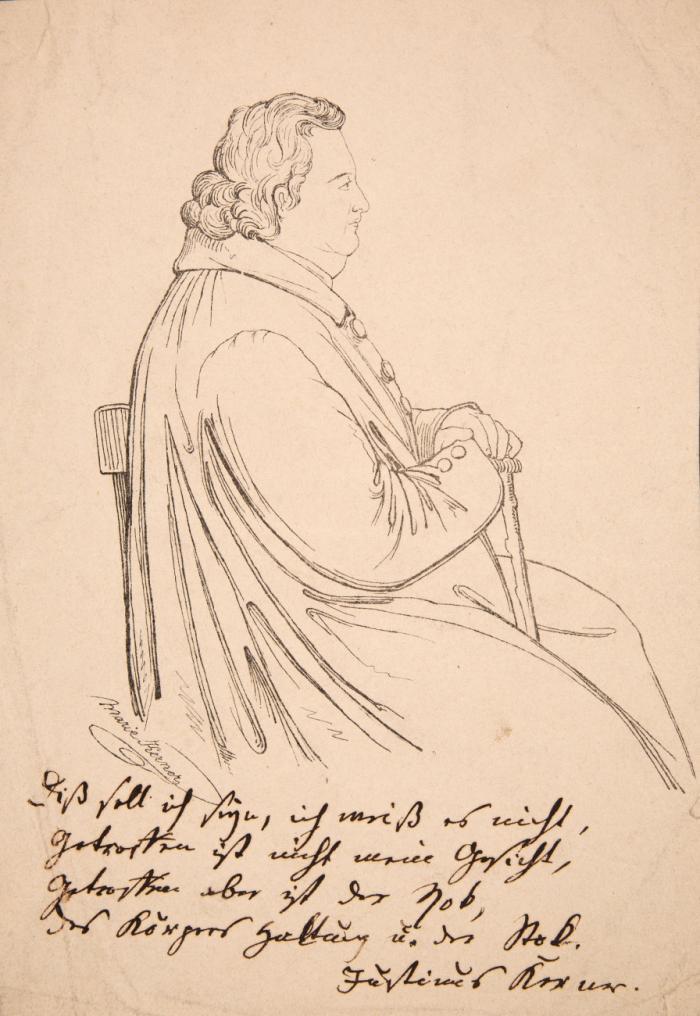 Marie Kerner
Diß soll ich seyn, ich weiß es nicht,
Getroffen ist nicht mein Gesicht,
Getroffen aber ist der Rok,
des Körpers Haltung u. der Stok.
Justinus Kerner.